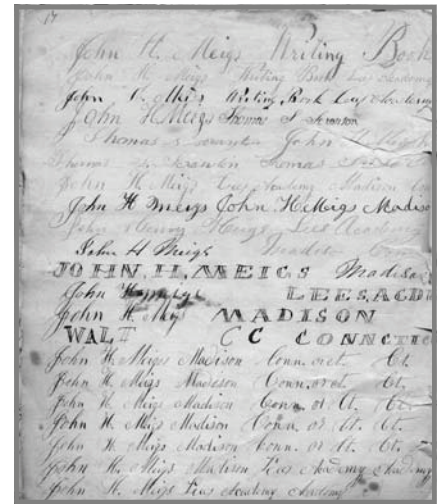 17
John H. Meigs Writing Book
John H Meigs Writing Book Lees Academy
John H. Meigs Writing Book Lees Academy
John H Meigs Thomas S Scranton
Thomas S Scranton John H Meigs
Thomas S Scranton Thomas
John H. Meigs Lees Academy Madison
John H Meigs John H Meigs Madison
John Henry Meigs Lees Academy
John H Meigs Madison Conn
JOHN. H. MEIGS Madison
John LEES, ACD
John H Meigs MADISON
WALT C C CONNCTIC
John H. Meigs Madison Conn. or ct. Ct.
John H. Meigs Madison Conn. or ct. Ct.
John H. Meigs Madison Conn. or ct. Ct.
John H. Meigs Madison Conn. or ct. Ct.
John H. Meigs Madison Conn. or ct. Ct.
John H. Meigs Madison Lees Academy Academy
John H. Meigs Lees Academy Academy